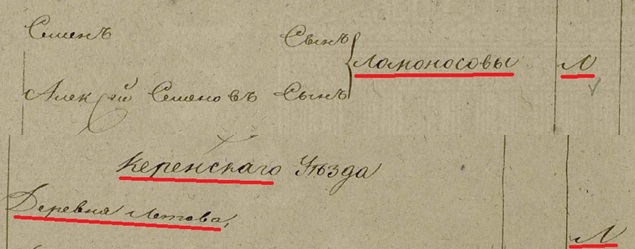 Семенъ Сынъ
Ломоносовы Л
Алексѣй Семеновъ Сынъ
Керенскаго Уѣзда
Деревня Летова,
Л